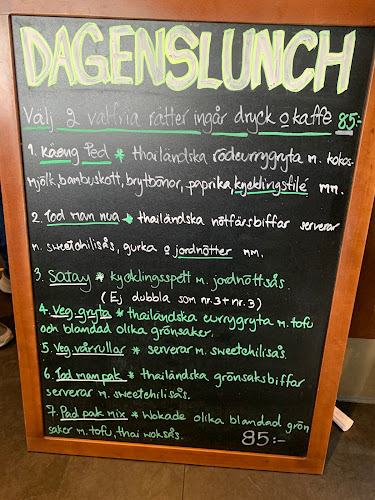 DAGENSLUNCH
Välj 2 valfria rätter ingår dryck o kaffe 85:-
1. Kaeng Ped * thailändska rödcurrygryta m. kokos-
mjölk, bambuskott, brytbönor, paprika, kycklingfilé mm.
2. Tod man nua * thailändska nötfärsbiffar serverar
m. sweetchilisås, gurka o jordnötter mm.
3. Satay * kycklingsspett m. jordnötsås.
(Ej dubbla som nr.3 + nr.3)
4. Veg. gryta * thailändska currygryta m. tofu
och blandad olika grönsaker.
5. Veg. vårrullar * serverar m. sweetchilisås.
6. Tod man pak * thailändska grönsaksbiffar
serverar m. sweetchilisås.
7. Pad pak mix * Wokade olika blandad grön
saker m. tofu, thai woksås. 85:-